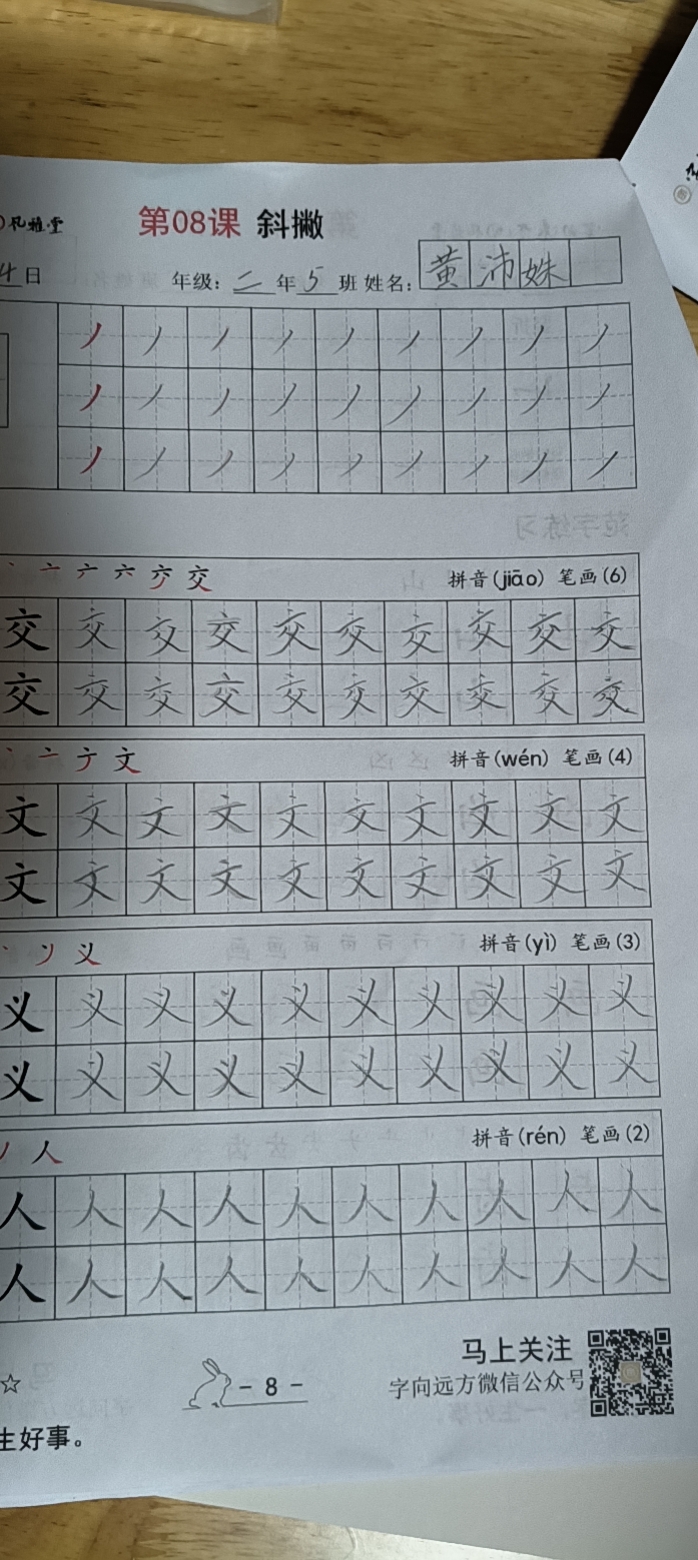 风雅堂
第08课 斜撇
4日 年级：二年5班 姓名：黄沛姝
丿丿丿丿丿丿丿丿丿
丿丿丿丿丿丿丿丿丿
丿丿丿丿丿丿丿丿丿
交 拼音(jiāo) 笔画(6)
交交交交交交交交交交
交交交交交交交交交交
文 拼音(wén) 笔画(4)
文文文文文文文文文文
文文文文文文文文文文
义 拼音(yì) 笔画(3)
义义义义义义义义义义
义义义义义义义义义义
人 拼音(rén) 笔画(2)
人人人人人人人人人人
人人人人人人人人人人
马上关注
字向远方微信公众号
☆ - 8 -
生好事。